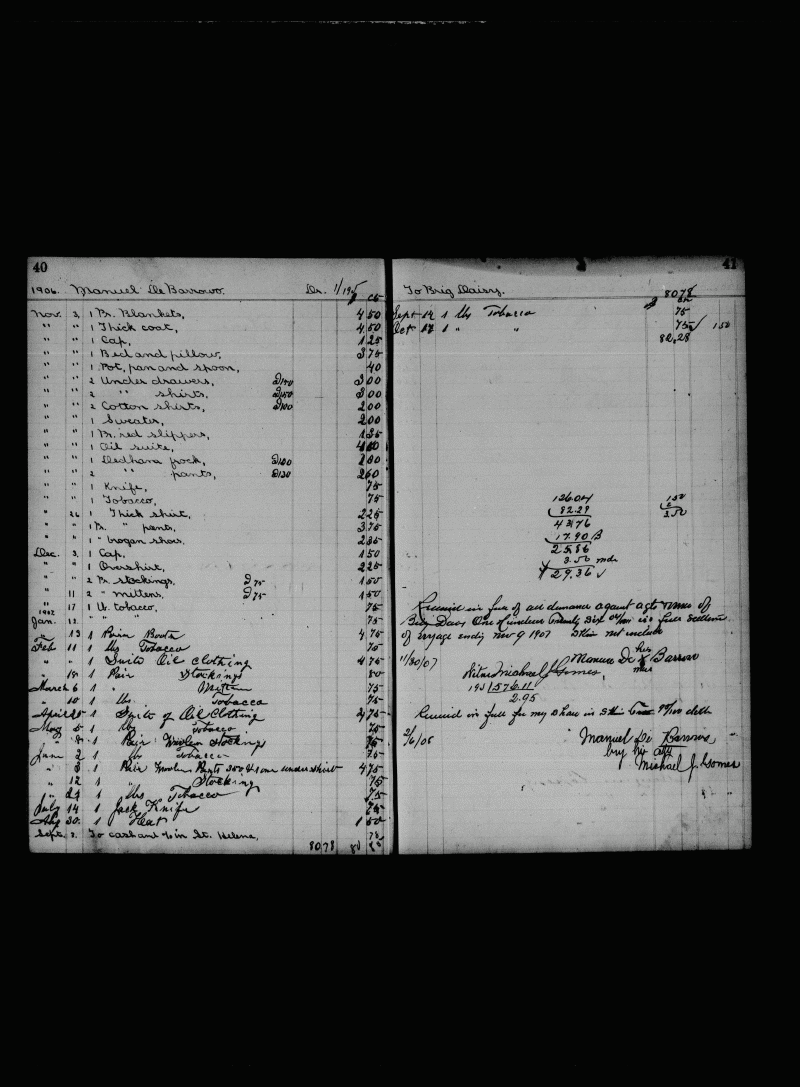 40
1906. Manuel De Barrows. Dr. 1/195
$ cts
Nov. 3, 1 Pr. Blankets, 4 50
" " 1 Thick coat, 4 50
" " 1 Cap, 1 25
" " 1 Bed and pillow, 3 75
" " 1 Pot, pan and spoon, 40
" " 2 Under drawers, 3 00
" " 2 " shirts, 3 00
" " 2 Cotton shirts, 2 00
" " 1 Sweater, 2 00
" " 1 Pr. red slippers, 1 35
" " 1 Oil suite,
" " 1 Dedham frock,
" " 2 " pants, 2 60
" " 1 Knife, 75
" " 1 Tobacco, 75
" 26 1 Thick shirt, 2 25
" " 1 Pr. " pants, 3 75
" " 1 " brogan shoes, 2 35
Dec. 3, 1 Cap, 1 50
" " 1 Overshirt, 2 25
" " 2 Pr. stockings, 1 50
" 11 2 " mittens, 1 50
" 17 1 lb. tobacco, 75
1907
Jan. 12 " " " 75
" 13 1 Pair Boots 4 75
Feb 11 1 lbs Tobacco 75
" " 1 Suits Oil Clothing 4 75
" 18 1 Pair Stockings 80
March 6 1 " Mitten 75
" 10 1 lbs. Tobacco 75
April 25 1 Suits of Oil Clothing 2 75
May 5 1 lb Tobacco 75
" 8 1 Pair Woolen Stockings 75
June 2 1 lbs Tobacco 75
" 3 1 Pair Woolen Pants 350 & 1 one undershirt 4 75
" 12 1 " Stocking 75
" 24 1 lbs Tobacco 75
July 14 1 Jack Knife 75
Aug 30. 1 Heat 1 50
Sept. 2. To cash ant % in St. Helena,
80 78
41
To Brig Daisy. 80 78
Sept 14 1 lbs Tobacco 75
Oct 17 1 " " 75 1 50
82.28
126.04
82.28
43.76
17.90
25.86
3.50 mds
29.36
1 50
2
3.50
Received in full of all demands against agts & owners of
Brig Daisy One hundred twenty six 04/100 in full settlem
of voyage ending Nov 9 1907 Slth not include
11/30/07 Manuel De X Barrow
his
mark
Witns Michael J Gomes,
195 | 576.11
2.95
Received in full for my share in 95/100 dolls
2/6/08 Manuel De Barrows,
by his atty
Michael J. Gomes